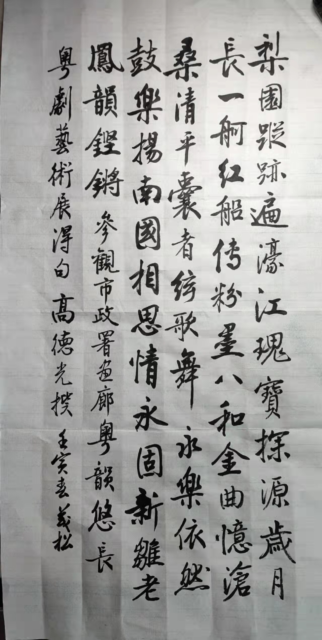 梨園蹤跡遍濠江瑰寶探源歲月
長一舸紅船傳粉墨八和金曲憶滄
桑清平囊者弦歌舞永樂依然
鼓樂揚南國相思情永固新雛老
鳳韻鏗鏘參觀市政署画廊粤韻悠長
粤劇藝術展得句高德光撰壬寅春義松